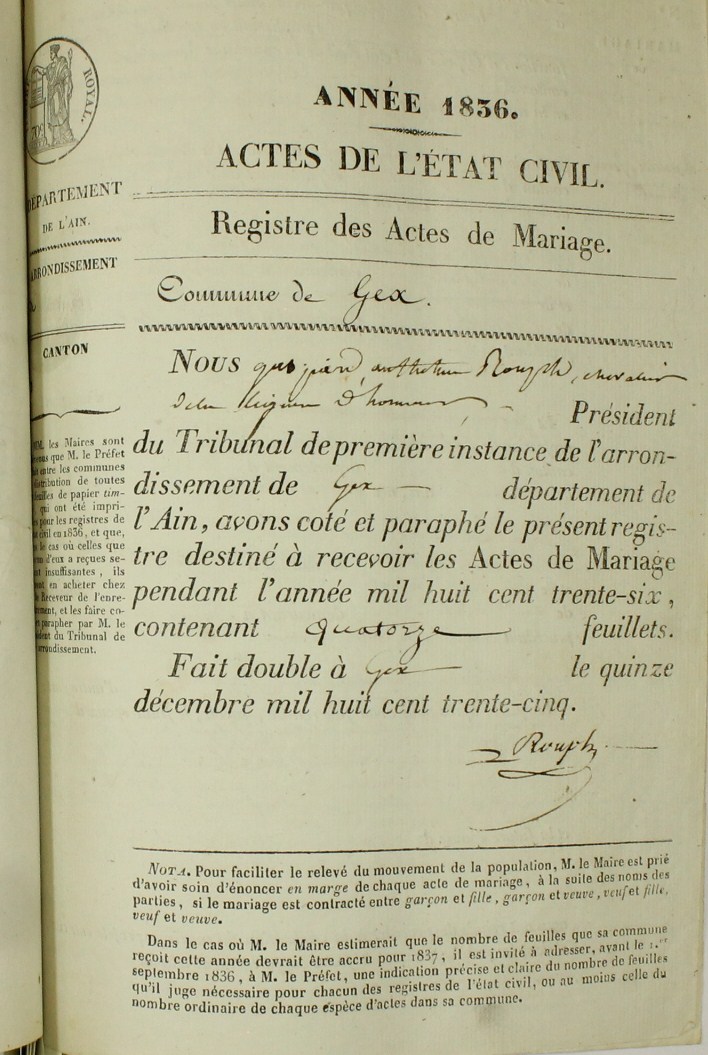 ROYAL.
ANNÉE 1836.
ACTES DE L'ÉTAT CIVIL.
DÉPARTEMENT
DE L'AIN.
Registre des Actes de Mariage.
ARRONDISSEMENT
Commune de Gex.
CANTON
NOUS Rouph, chevalier
d'honneur Président
du Tribunal de première instance de l'arron-
dissement de Gex département de
l'Ain, avons coté et paraphé le présent regis-
tre destiné à recevoir les Actes de Mariage
pendant l'année mil huit cent trente-six,
contenant quatorze feuillets.
Fait double à Gex le quinze
décembre mil huit cent trente-cinq.
Rouph
MM. les Maires sont
que M. le Préfet
entre les communes
distribution de toutes
feuilles de papier tim-
qui ont été impri-
pour les registres de
civil en 1836, et que,
le cas où celles que
d'eux a reçues se-
insuffisantes, ils
en acheter chez
Receveur de l'enre-
et les faire co-
parapher par M. le
du Tribunal de
arrondissement.
NOTA. Pour faciliter le relevé du mouvement de la population, M. le Maire est prié
d'avoir soin d'énoncer en marge de chaque acte de mariage, à la suite des noms des
parties, si le mariage est contracté entre garçon et fille, garçon et veuve, veuf et fille,
veuf et veuve.
Dans le cas où M. le Maire estimerait que le nombre de feuilles que sa commune
reçoit cette année devrait être accru pour 1837, il est invité à adresser, avant le 1.er
septembre 1836, à M. le Préfet, une indication précise et claire du nombre de feuilles
qu'il juge nécessaire pour chacun des registres de l'état civil, ou au moins celle du
nombre ordinaire de chaque espèce d'actes dans sa commune.